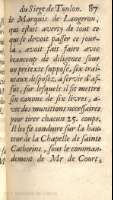 du Siege de Toulon. 87
le Marquis de Langeron,
qui estoit averty de tout ce
qui se devoit passer ce jour-
là, avoit fait faire avec
beaucoup de diligence sous
un pretexte supposé, six trai-
neaux disposez, à servir d'af-
futs, sur lesquels il fit mettre
six canons de six livres, a-
vec des munitions necessaires
pour tirer chacun 25. coups.
Il les fit conduire sur la hau-
teur de la Chapelle de Sainte
Catherine, sous le comman-
dement de Mr de Court,